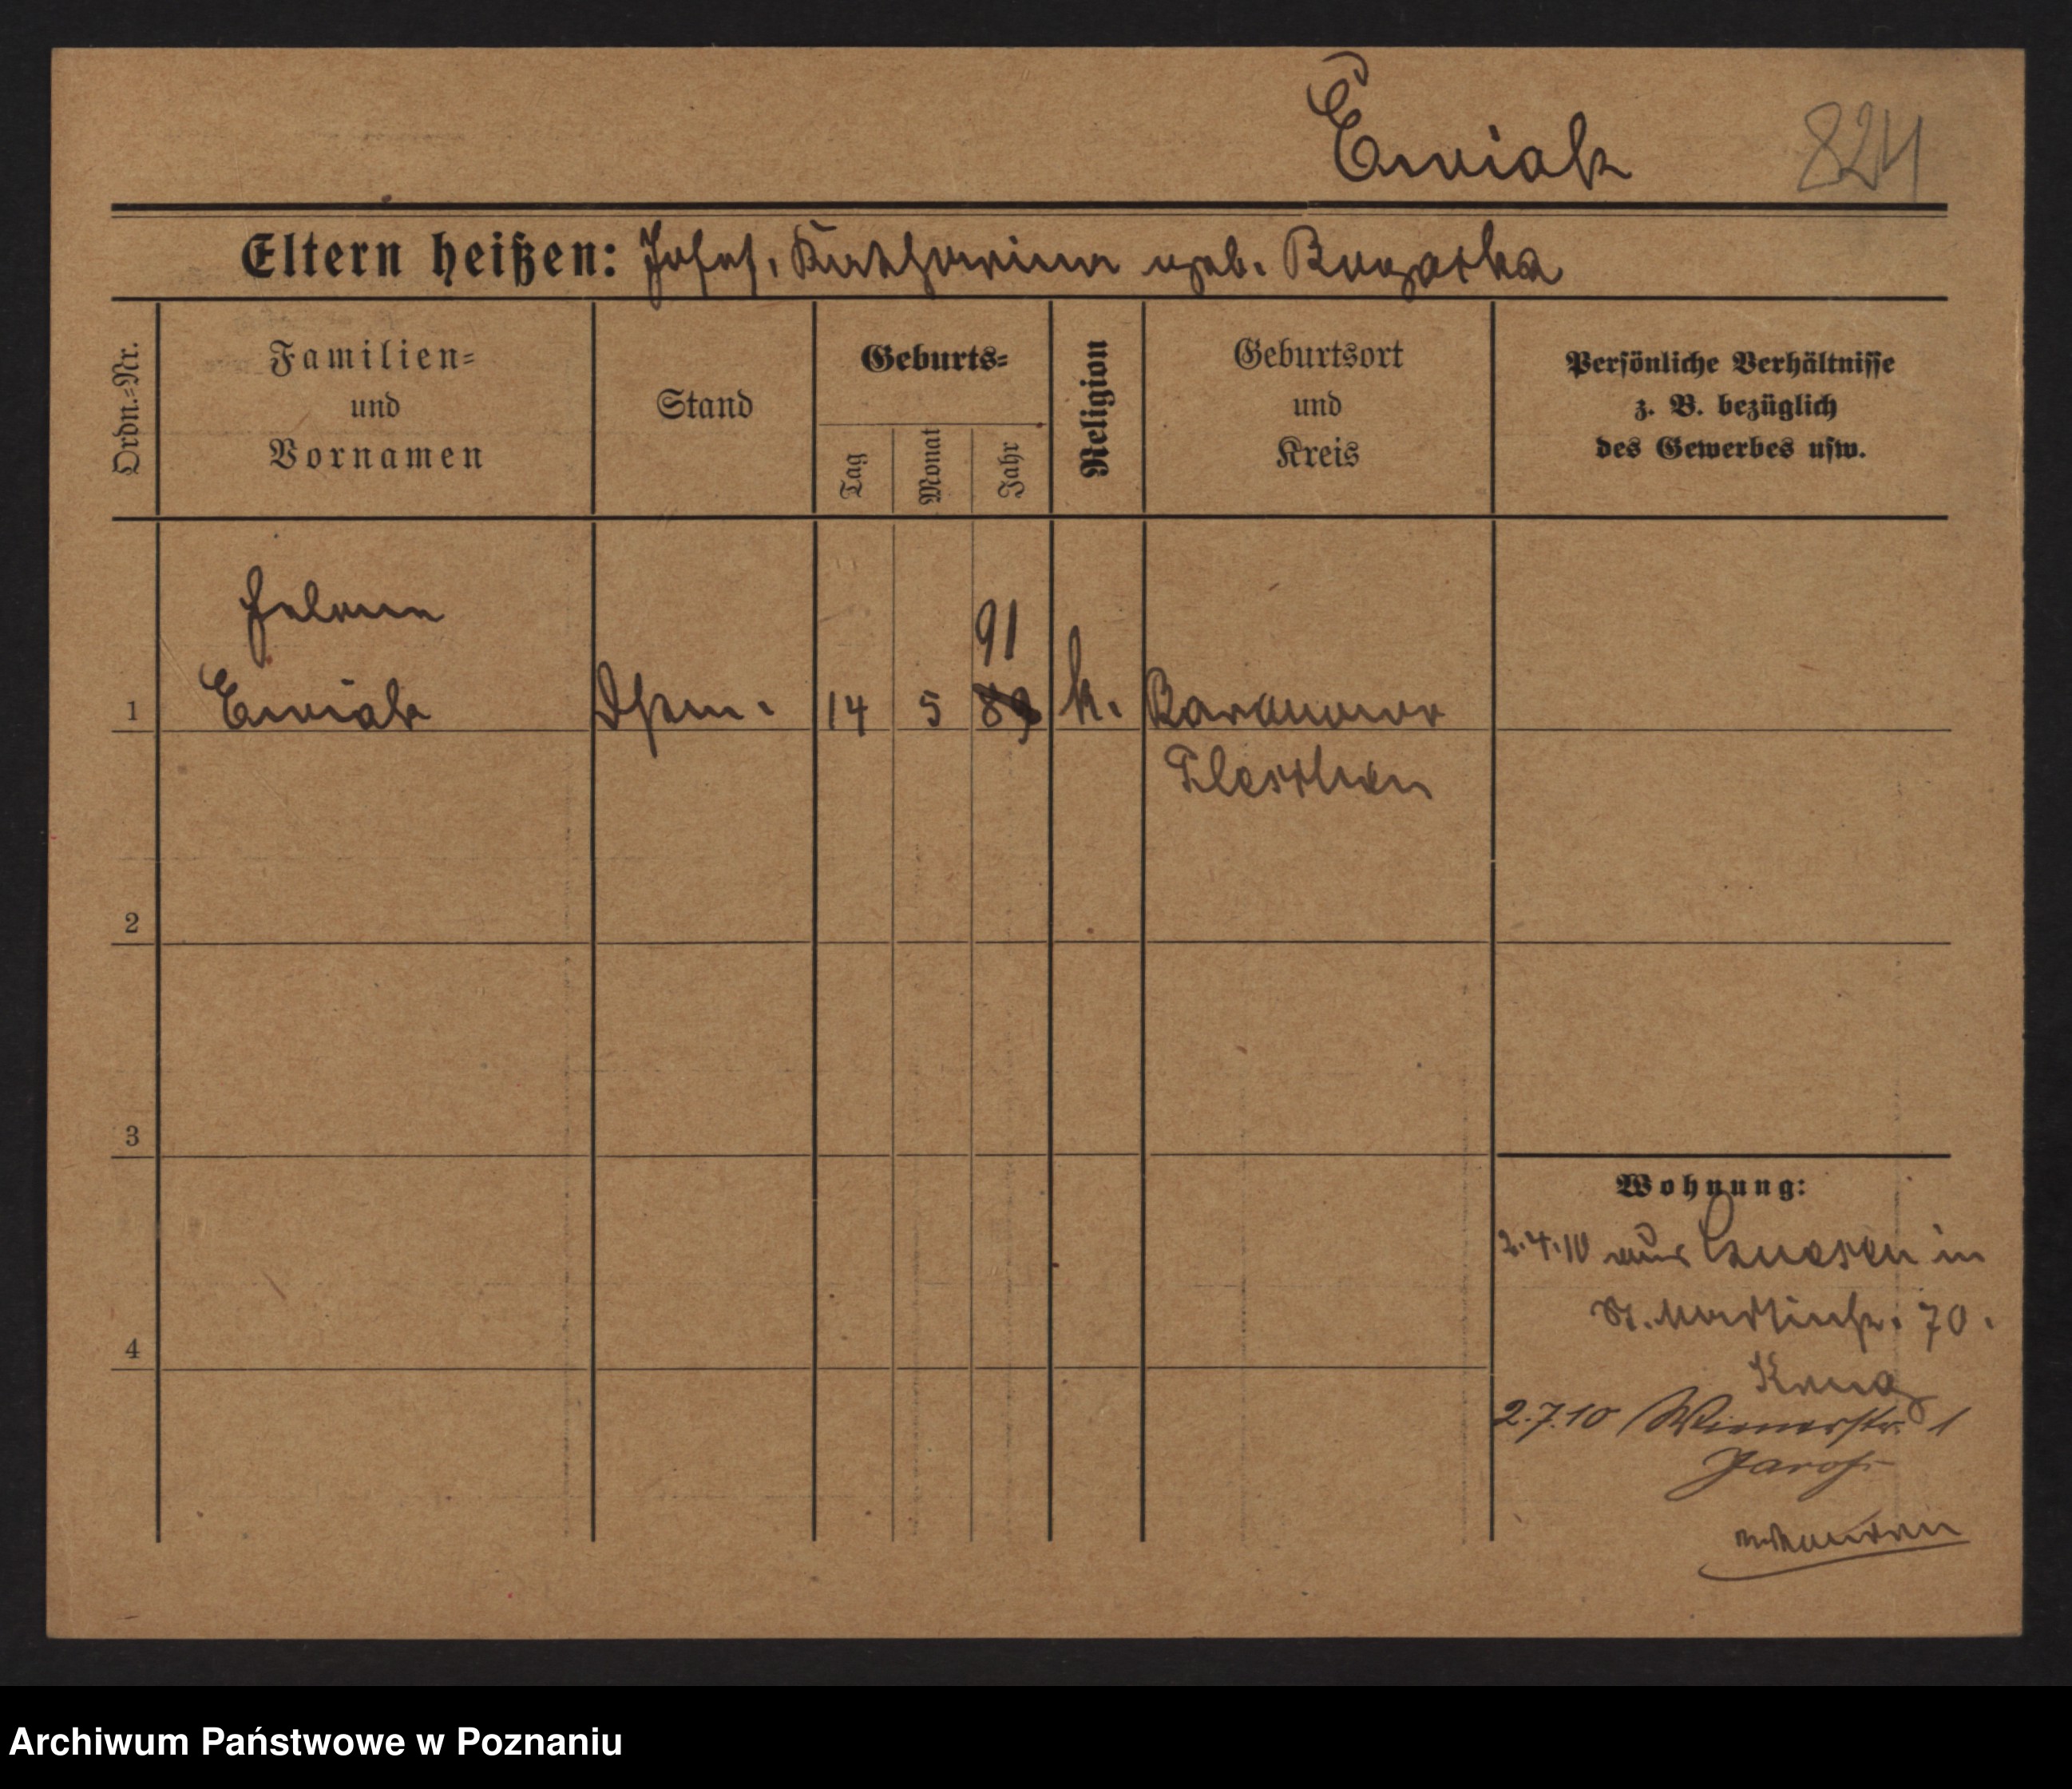 Ćwiak 824
Eltern heißen: Josef, Katharina geb. Rogacka
Ordn.-Nr.
Familien-
und
Vornamen
Stand
Geburts-
Tag
Monat
Jahr
Religion
Geburtsort
und
Kreis
Persönliche Verhältnisse
z. B. bezüglich
des Gewerbes usw.
91
1 Ćwiak 14 5 89 k. Baranowo
Pleschen
2
3
4
Wohnung:
2.4.10 aus Gnesen in
St. Martinstr. 70.
2.7.10 Wienerstr. 1
Archiwum Państwowe w Poznaniu